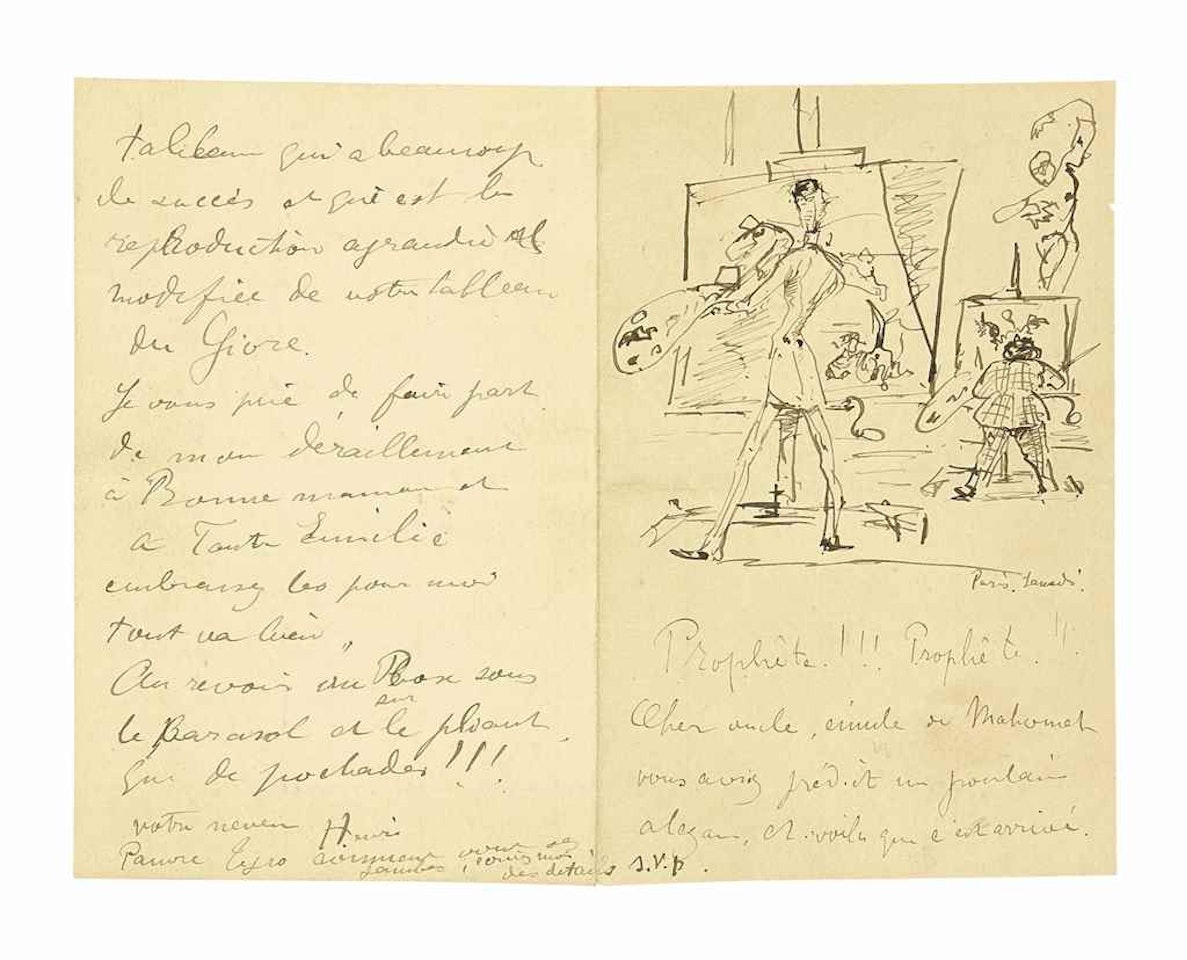 tableau qui a beaucoup
de succès et qui est la
reproduction agrandie et
modifiée de votre tableau
du Givre.
Je vous prie de faire part
de mon déraillement
à Bonne maman et
a Tante Emilie
embrassez les pour moi
tout va bien
Au revoir au Bosc sous
le Parasol et sur le pliant
que de pochades!!!
votre neveu Henri
Pauvre comment vont
jambes,
des details s.v.p.
Paris. Samedi.
Prophête!!! Prophête!!
Cher oncle, émule de Mahomet
vous aviez prédit un poulain
alezan, et voila que c'est arrivé.